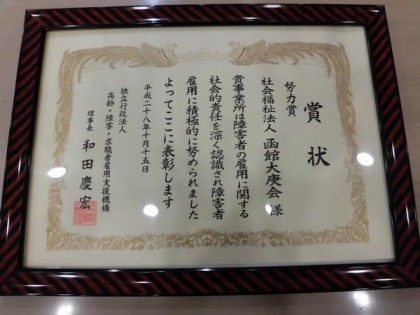 賞状
努力賞
社会福祉法人 函館大庚会 様
貴事業所は障害者の雇用に関する
社会的責任を深く認識され障害者
雇用に積極的に努められました
よってここに表彰します
平成二十八年十月十五日
独立行政法人
高齢・障害・求職者雇用支援機構
理事長 和田慶宏